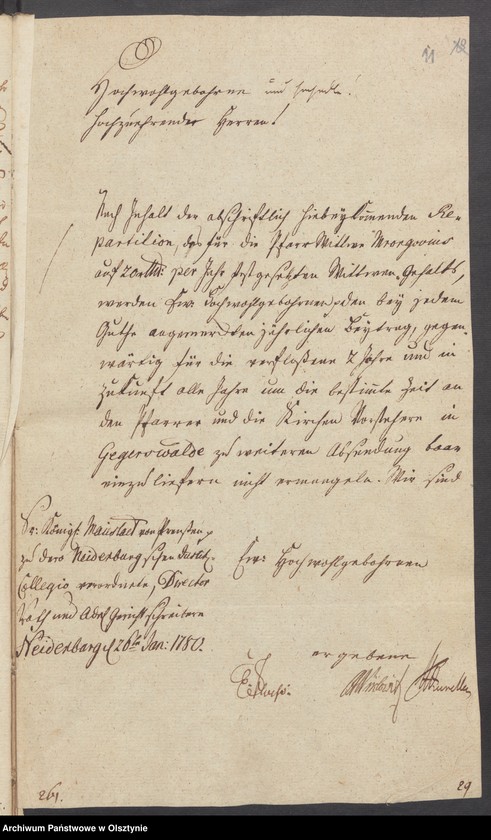 11
Hochwohlgebohrne und
Hochzuehrende Herren!
Nach Inhalt der abschriftlich hiebeykommenden Re-
partition, des für die Pfarr Wittwe Mrongovius
auf 20 rthlr: per Jahr festgesetzten Wittwen Gehalts,
werden Ew: Hochwohlgebohrnen den bey jedem
Guthe angemerckten jährlichen Beytrag, gegen-
wärtig für die verfloßene 2 Jahre und in
Zukunft alle Jahre um die bestimmte Zeit an
den Pfarrer und die Kirchen Vorstehere in
Geyerswalde zu weiteren Absendung baar
einzuliefern nicht ermangeln. Wir sind
Sr: Königl: Maiestaet von Preußen p
zu dero Neidenburgschen Justitz-
Collegio verordnete, Director
Räthe und Adel Gerichtschreiber
Neidenburg d 26ten Jan: 1780.
Ew: Hochwohlgebohrnen
ergebene
261.
29
Archiwum Państwowe w Olsztynie